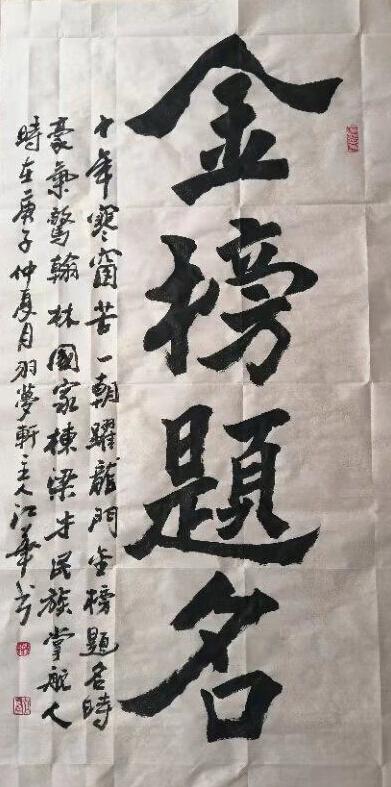 金榜題名
十年寒窗苦一朝躍龍門金榜題名時
豪氣驚翰林國家棟梁才民族掌舵人
時在庚子仲夏月羽夢軒主人江華书